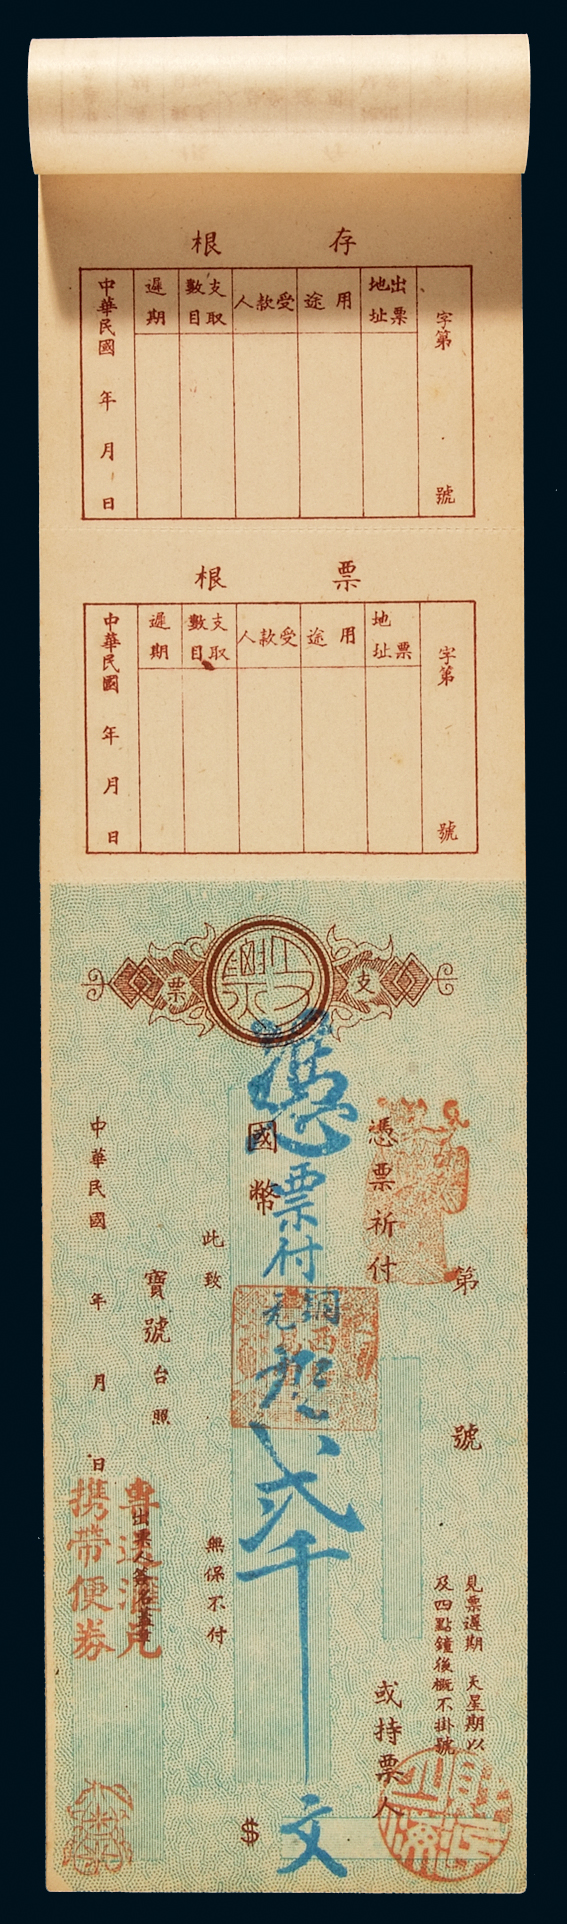 存根
字第　　號
出票地址
用途
受款人
支取數目
遲期
中華民國　年　月　日
票根
字第　　號
票地址
用途
受款人
支取數目
遲期
中華民國　年　月　日
支票
第　　號
見票遲期　天星期以
及四點鐘後概不掛號
憑票祈付
或持票人
國幣
憑票付銅元
弍千
文
$
此致
無保不付
寶號台照
中華民國　年　月　日
出票人簽名蓋章
攜帶便券